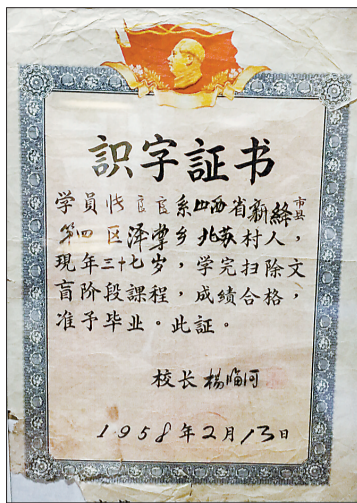 識字証书
学員 良良系山西省新絳市县
第四区泽掌乡北苏村人，
現年三十七岁，学完扫除文
盲阶段課程，成績合格，
准予毕业。此証。
校长 楊临河
1958年2月13日